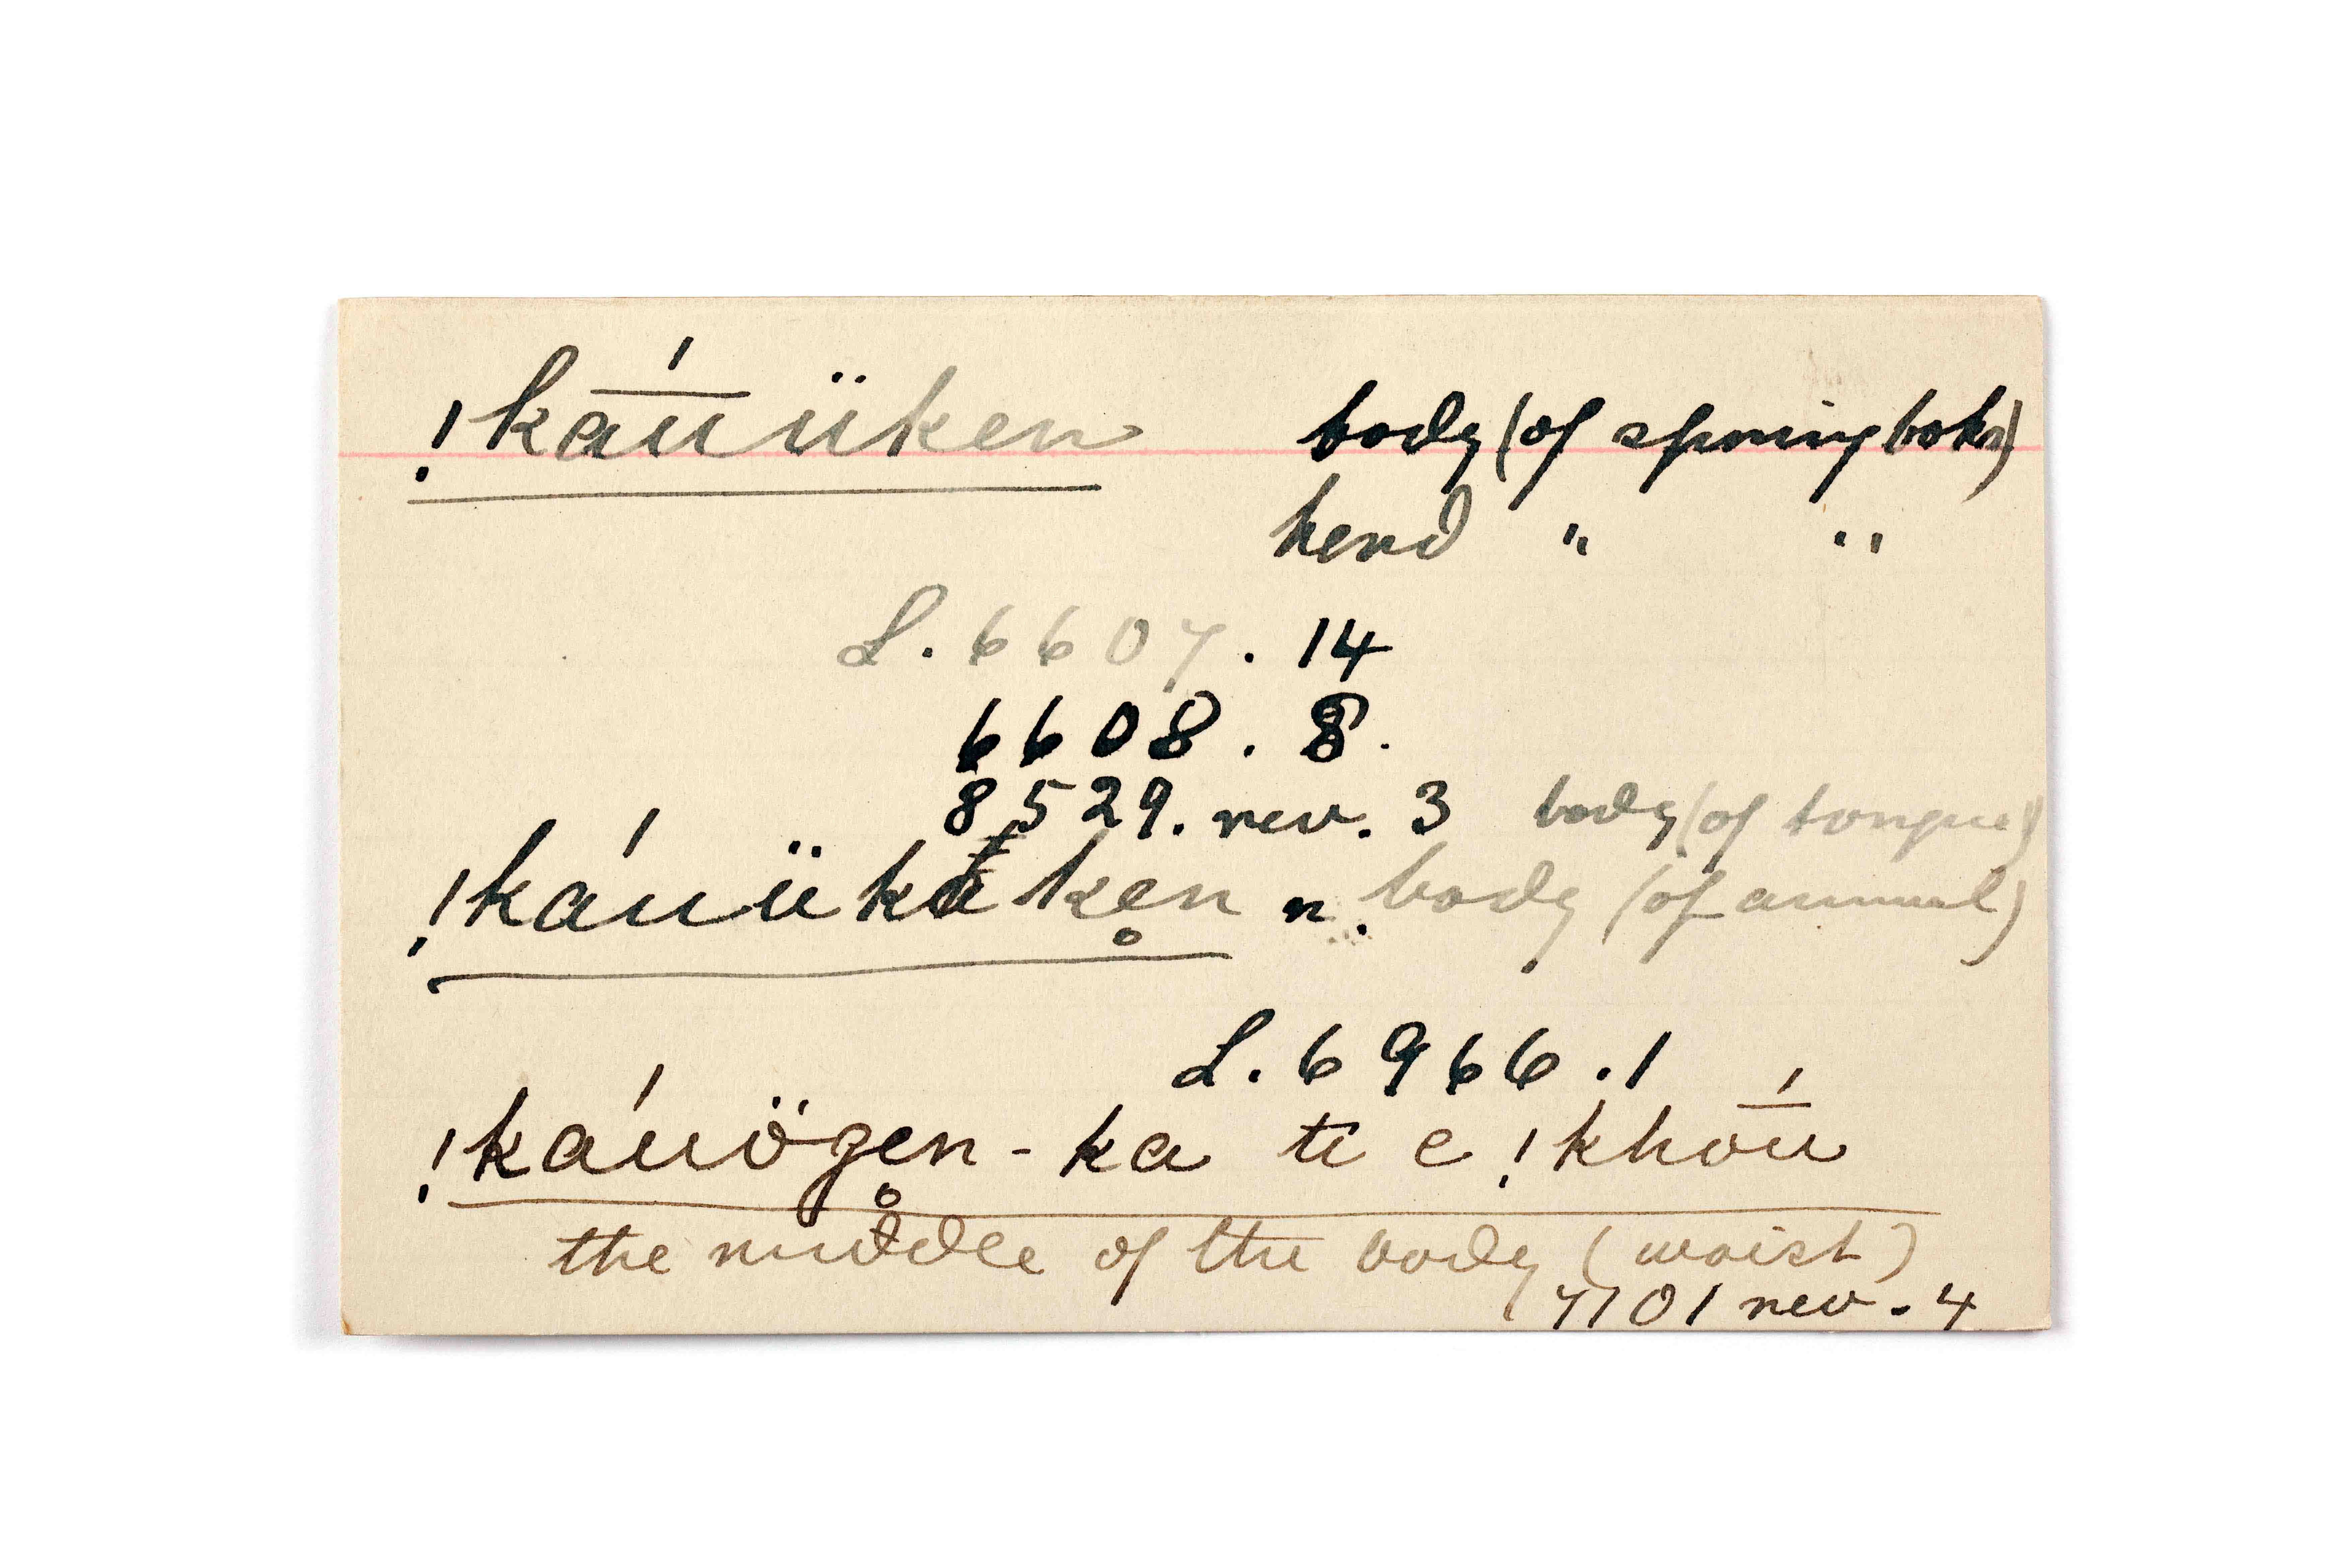 !ka̅úüken body (of springboks)
herd " "
L. 6607. 14
6608. 8.
8529. rev. 3 body (of tongue)
!káuükaken̥ n. body (of animal)
L. 6966. 1
!káuögen̥-ka ti e !kho̅ú
the middle of the body (waist)
7101 rev. 4